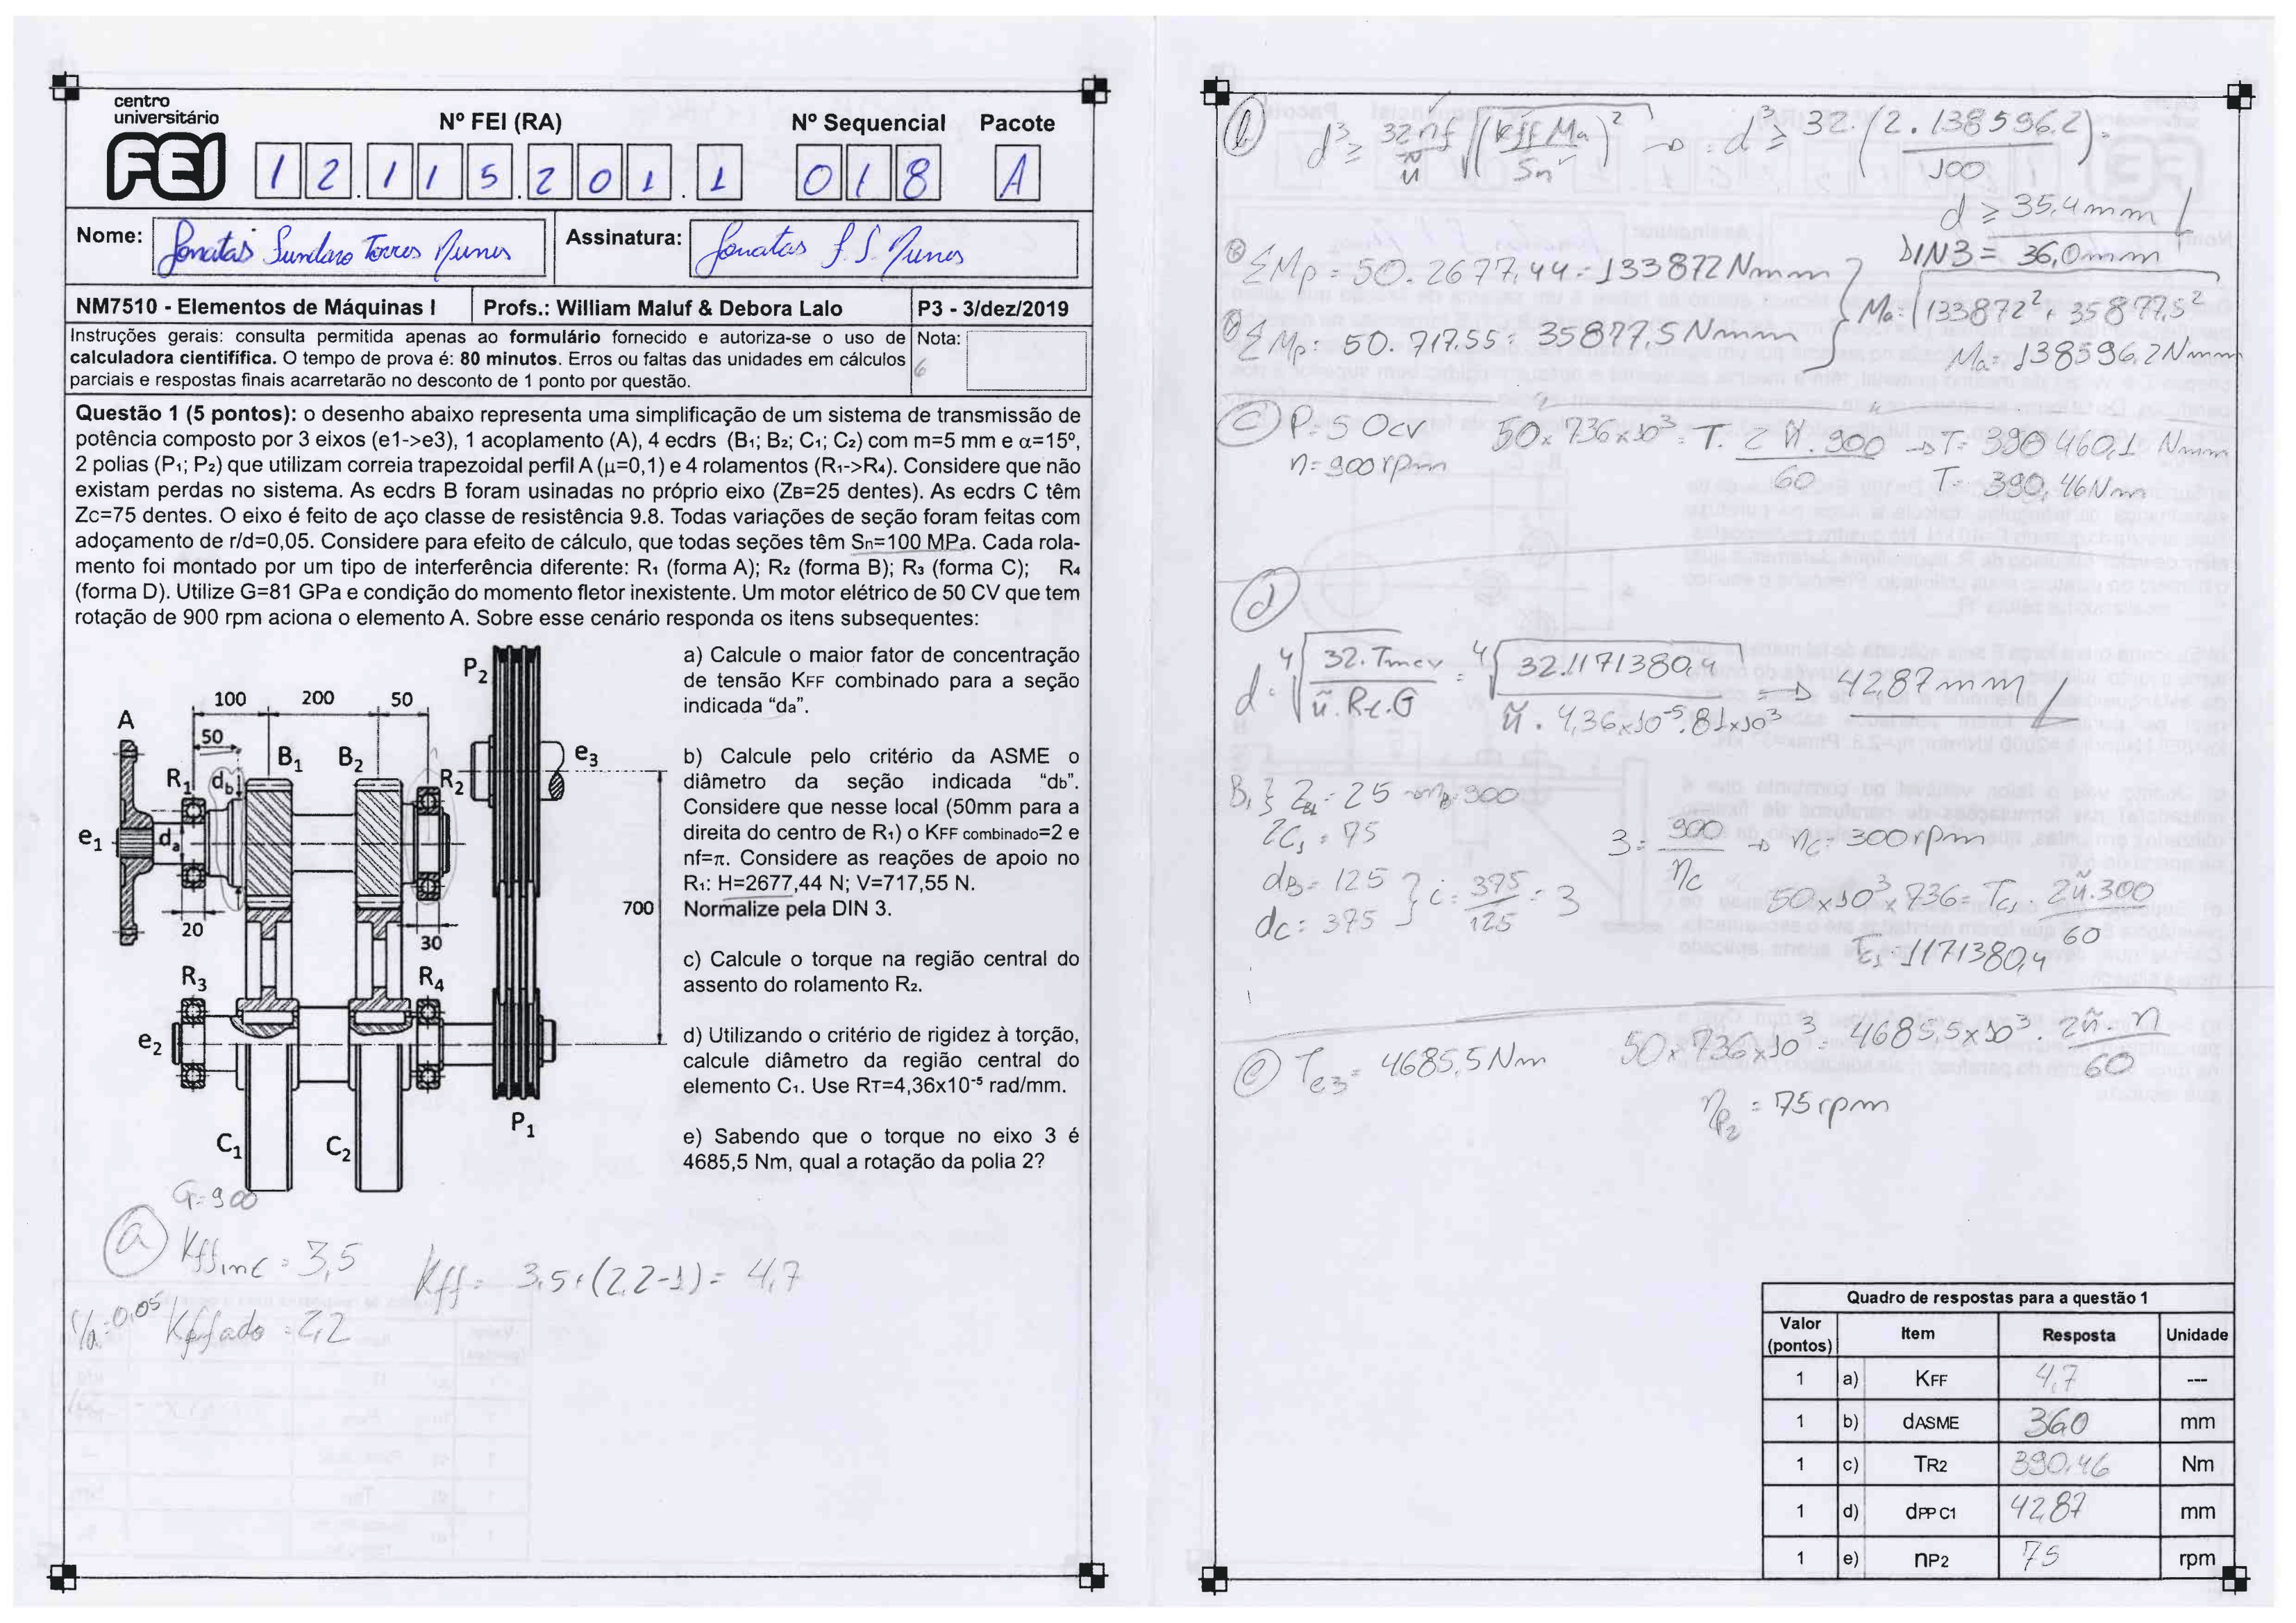 centro
universitário
FEI
Nº FEI (RA)
Nº Sequencial
Pacote
12.115.201.1
018
A
Nome:
Assinatura:
NM7510 - Elementos de Máquinas I
Profs.: William Maluf & Debora Lalo
P3 - 3/dez/2019
Instruções gerais: consulta permitida apenas ao formulário fornecido e autoriza-se o uso de
calculadora cientifífica. O tempo de prova é: 80 minutos. Erros ou faltas das unidades em cálculos
parciais e respostas finais acarretarão no desconto de 1 ponto por questão.
Nota:
6
Questão 1 (5 pontos): o desenho abaixo representa uma simplificação de um sistema de transmissão de
potência composto por 3 eixos (e1->e3), 1 acoplamento (A), 4 ecdrs (B1; B2; C1; C2) com m=5 mm e α=15º,
2 polias (P1; P2) que utilizam correia trapezoidal perfil A (μ=0,1) e 4 rolamentos (R1->R4). Considere que não
existam perdas no sistema. As ecdrs B foram usinadas no próprio eixo (ZB=25 dentes). As ecdrs C têm
Zc=75 dentes. O eixo é feito de aço classe de resistência 9.8. Todas variações de seção foram feitas com
adoçamento de r/d=0,05. Considere para efeito de cálculo, que todas seções têm Sn=100 MPa. Cada rola-
mento foi montado por um tipo de interferência diferente: R1 (forma A); R2 (forma B); R3 (forma C); R4
(forma D). Utilize G=81 GPa e condição do momento fletor inexistente. Um motor elétrico de 50 CV que tem
rotação de 900 rpm aciona o elemento A. Sobre esse cenário responda os itens subsequentes:
100 200 50
50
A
B1
B2
R1
R2
db
da
e1
P2
e3
700
20
30
R3
R4
e2
C1
C2
P1
a) Calcule o maior fator de concentração
de tensão KFF combinado para a seção
indicada “da”.
b) Calcule pelo critério da ASME o
diâmetro da seção indicada “db”.
Considere que nesse local (50mm para a
direita do centro de R1) o KFF combinado=2 e
nf=π. Considere as reações de apoio no
R1: H=2677,44 N; V=717,55 N.
Normalize pela DIN 3.
c) Calcule o torque na região central do
assento do rolamento R2.
d) Utilizando o critério de rigidez à torção,
calcule diâmetro da região central do
elemento C1. Use RT=4,36x10⁻⁵ rad/mm.
e) Sabendo que o torque no eixo 3 é
4685,5 Nm, qual a rotação da polia 2?
a
Kff = 3,5 + (2,2-1) = 4,7
r/d=0,05 Kffado = 2,2
d³ ≥ 32 nf/π √(Kff Ma/Sn)² → d³ ≥ 32.(2.138596,2/100)
d ≥ 35,4mm
DIN3 = 36,0mm
ΣMp = 50. 2677,44 = 133872 Nmm
ΣMp = 50. 717,55 = 35877,5 Nmm
Ma = √133872² + 35877,5²
Ma = 138596,2 Nmm
c P=50cv 50x736x10³ = T. 2π.900/60 → T= 390460,1 Nmm
n=900rpm T= 390,46Nm
d
d = ⁴√32.Tmcv/π.Rt.G = ⁴√32.1171380,4/π.4,36x10⁻⁵.81x10³ ⇒ 42,87mm
ZC1 = 75
3 = 900/nc → nc = 300rpm
dB = 125
dC = 375 } i = 375/125 = 3
50x10³x736 = Tc1 2π.300/60
Tc1 = 1171380,4
e Te3 = 4685,5 Nm 50x736x10³ = 4685,5x10³ . 2π.n/60
nP2 = 75rpm
Quadro de respostas para a questão 1
Valor (pontos) Item Resposta Unidade
1 a) KFF 4,7 ---
1 b) dASME 36,0 mm
1 c) TR2 390,46 Nm
1 d) dPP C1 42,87 mm
1 e) nP2 75 rpm